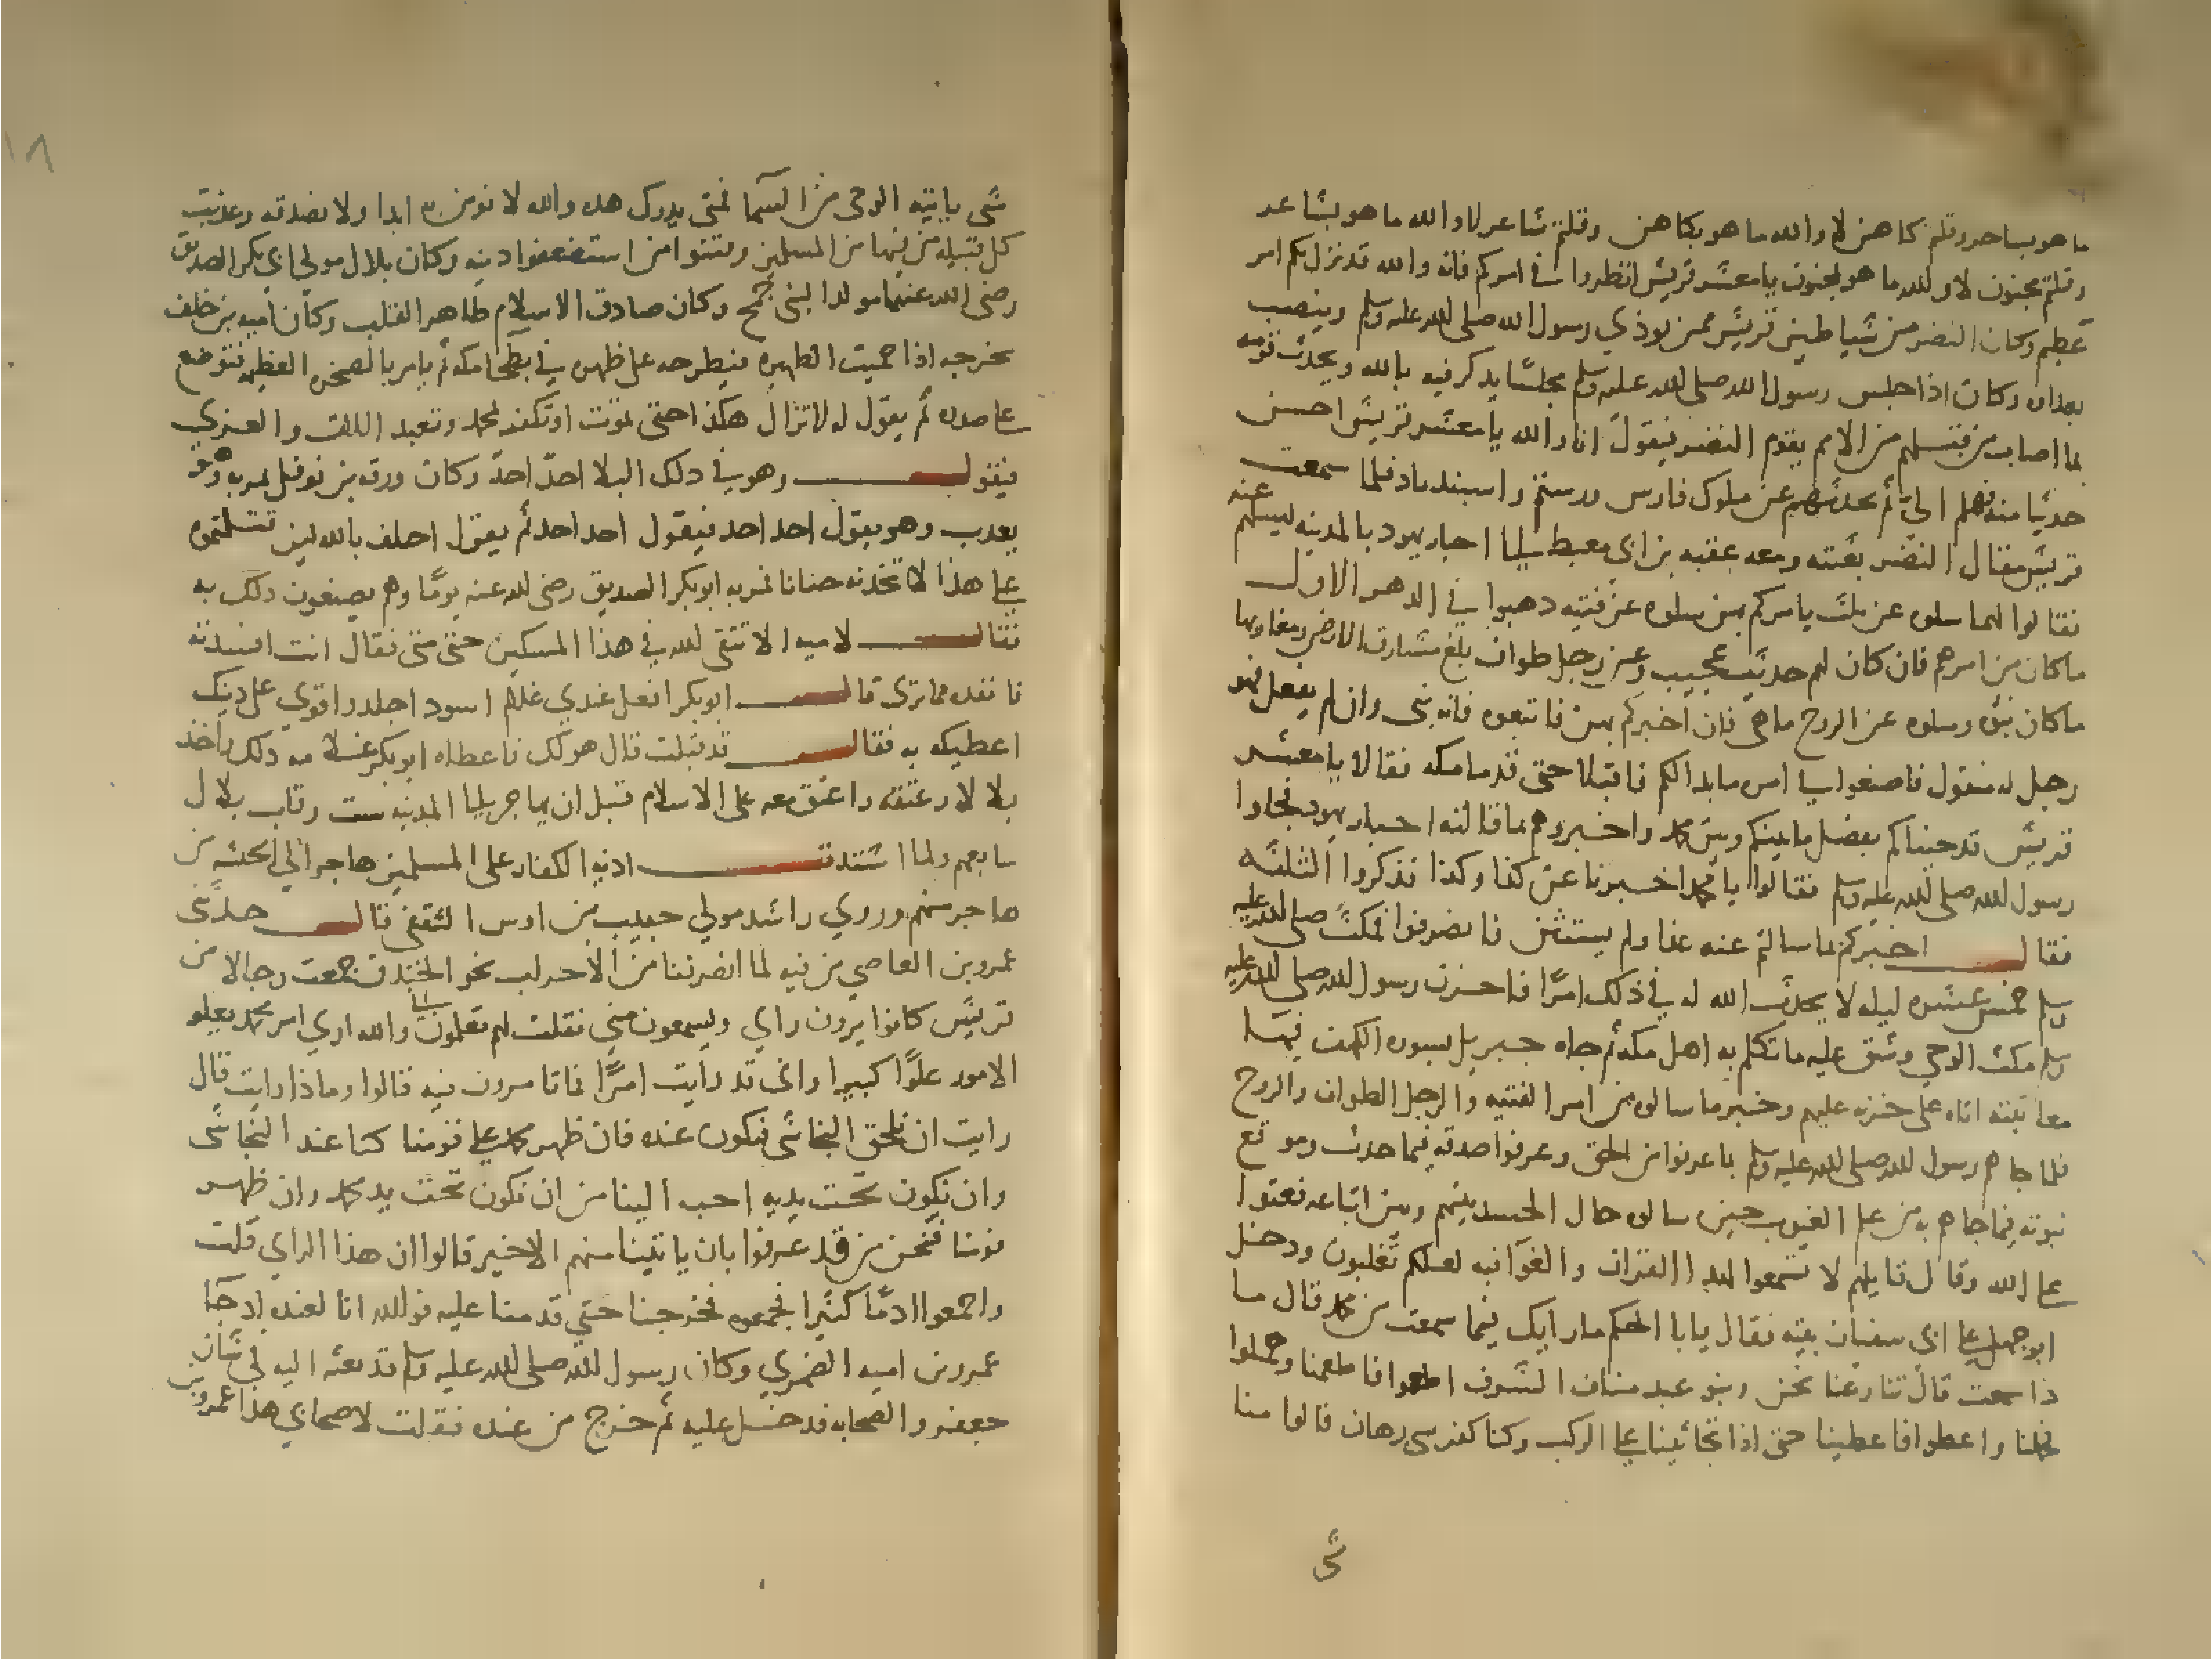 ما هو بساحر وقلتم كاهن لا والله ما هو بكاهن وقلتم شاعر لا والله ما هو بشاعر
وقلتم مجنون لا والله ما هو بمجنون يا معشر قريش انظروا في امركم فانه والله قد نزل بكم امر
عظيم وكان النضر من شياطين قريش ممن يوذي رسول الله صلى الله عليه وسلم وينصب
بعداوه وكان اذا جلس رسول الله صلى الله عليه وسلم مجلسا يذكر فيه بالله ويحدث قومه
بما اصاب من قبلهم من الامم يقوم النضر فيقول انا والله يا معشر قريش احسن
حديثا منه فهلم الي ثم يحدثهم عن ملوك فارس ورستم واسبنديار فلما سمعت
قريش مقال النضر بعثته ومعه عقبه بن ابي معيط الى احبار يهود بالمدينه ليسلهم عنه
فقالوا لهما سلوه عن ثلث يامركم بهن سلوه عن فتيه دهبوا في الدهر الاول
ماكان من امرهم فان كان لهم حديث عجيب وعن رجل طواف بلغ مشارق الارض ومغاربها
ماكان نبؤه وسلوه عن الروح ماهي فان اخبركم بهن فاتبعوه فانه نبي وان لم يفعل فهو
رجل متقول فاصنعوا في امره مابدا لكم فاقبلا حتى قدما مكه فقالا يا معشر
قريش قد جيناكم بفصل مابينكم وبين محمد واخبروهم بما قالته احبار يهود فجاوا
رسول الله صلى الله عليه وسلم فقالوا يا محمد اخبرنا عن كذا وكذا فذكروا الثلثه
فقال اخبركم بما سالتم عنه غدا ولم يستثن فانصرفوا فمكث صلى الله عليه
وسلم خمس عشره ليله لا يحدث الله له في ذلك امرا فاحزن رسول الله صلى الله عليه
وسلم مكث الوحي وشق عليه ما تكلم به اهل مكه ثم جاه جبريل بسوره الكهف فيها
معاتبته اياه على حزنه عليهم وخبر ما سالوه من امر الفتيه والرجل الطواف والروح
فلما جاهم رسول الله صلى الله عليه وسلم بما عرفوا من الحق وعرفوا صدقه فيما حدث وموقع
نبوته فيما جاهم به من علم الغيوب حين سالوه حال الحسد بينهم وبين اتباعه فعتوا
على الله وقال قايلهم لا تسمعوا لهذا القران والغوا فيه لعلكم تغلبون ودخل
ابو جهل على ابي سفيان بيته فقال يا با الحكم ما رايك فيما سمعت من محمد قال ما
ذا سمعت قال تنازعنا نحن وبنو عبد مناف الشرف اطعموا فاطعمنا وحملوا
فحملنا واعطوا فاعطينا حتى اذا تحاثينا على الركب وكنا كفرسي رهان قالوا منا
شي
١٨
شي ياتيه الوحي من السما فمتى يدرك هده والله لا نومن به ابدا ولا نصدقه وعذبت
كل قبيله من فيها من المسلمين وفتنوا من استضعفوا دينه وكان بلال مولى ابي بكر الصديق
رضي الله عنهما مولدا لبني جمح وكان صادق الاسلام طاهر القلب وكان اميه بن خلف
يخرجه اذا حميت الظهيره فيطرحه على ظهره في بطحا مكه ثم يامر بالصخره العظيمه فتوضع
على صدره ثم يقول له لا تزال هكذا حتى تموت او تكفر بمحمد وتعبد اللات والعزي
فيقول وهو في دلك البلا احد احد وكان ورقه بن نوفل يمر به وهو
يعدب وهو يقول احد احد فيقول احد احد ثم يقول احلف بالله لين قتلتموه
على هذا لاتخذنه حنانا فمر به ابو بكر الصديق رضي الله عنه يوما وهم يصنعون دلك به
فقال لاميه الا تتقي الله في هذا المسكين حتى متى فقال انت افسدته
فانقده مما ترى قال ابو بكر افعل عندي غلام اسود اجلد واقوي على دينك
اعطيكه به فقال قد قبلت قال هو لك فاعطاه ابو بكر غلامه دلك واخذ
بلالا وعتقه واعتق معه على الاسلام قبل ان يهاجر الى المدينه ست رقاب بلال
سابعهم ولما اشتدت ادية الكفار على المسلمين هاجر الى الحبشه من
هاجر منهم وروي راشد مولى حبيب بن اوس الثقفي قال حدثني
عمرو بن العاصي من فيه لما انصرفنا من الاحزاب نحو الخندق جمعت رجالا من
قريش كانوا يرون راي ويسمعون مني فقلت لهم تعلمون والله اني اري امر محمد يعلو
الامور علوا كبيرا واني قد رايت امرا فما تامرون فيه قالوا وماذا رايت قال
رايت ان نلحق النجاشي فنكون عنده فان ظهر محمد على قومنا كنا عند النجاشي
وان نكون تحت يديه احب الينا من ان نكون تحت يد محمد وان ظهر
قومنا فنحن من قد عرفوا بان ياتينا منهم الا خير قالوا ان هذا الراي قلت
واجمعوا ادما كثيرا فجمعوه فخرجنا حتي قدمنا عليه فوالله انا لعنده اذ جا
عمرو بن اميه الضمري وكان رسول الله صلى الله عليه وسلم قد بعثه اليه في شان
جعفر والصحابه فدخل عليه ثم خرج من عنده فقلت لاصحابي هذا عمرو بن